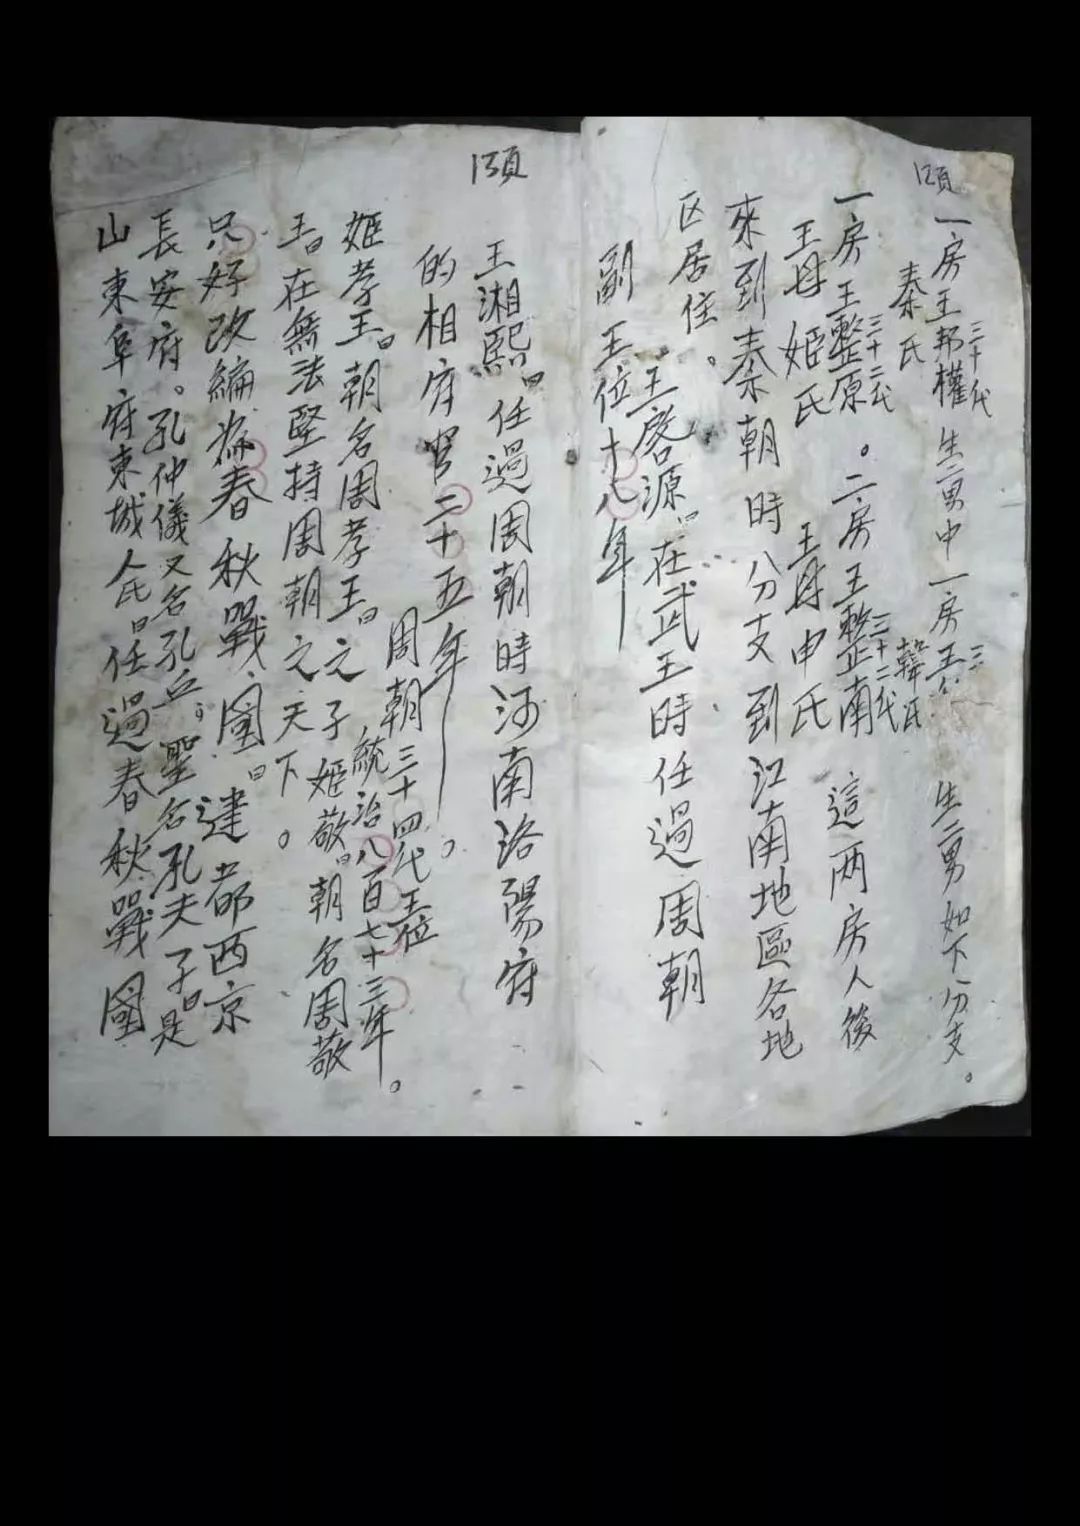 12頁
一房王邦權三十代 生一男中一房王 生二男如下分支。
秦氏 韓氏
一房王整原三十二代。二房王整南三十二代 這两房人後
王母姬氏 王母申氏
來到秦朝時分支到江南地區各地
区居住。
王啓源，在武王時任過周朝
副王位十八年
13頁
王湘熙。任過周朝時河南洛陽府
的相府官二十五年。
周朝三十四代王位
統治八百七十三年。
姬孝王。朝名周孝王。之子姬敬。朝名周敬
王。在無法堅持周朝之天下。
只好改編為春秋戰國。建都西京
長安府。孔仲儀又名孔丘。聖名孔夫子。是
山東阜府東城人氏。任過春秋戰國